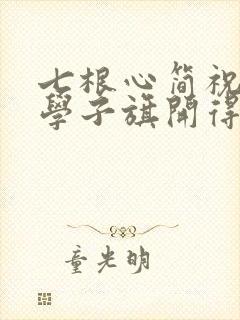 七根心简祝
學子旗開得
童光明